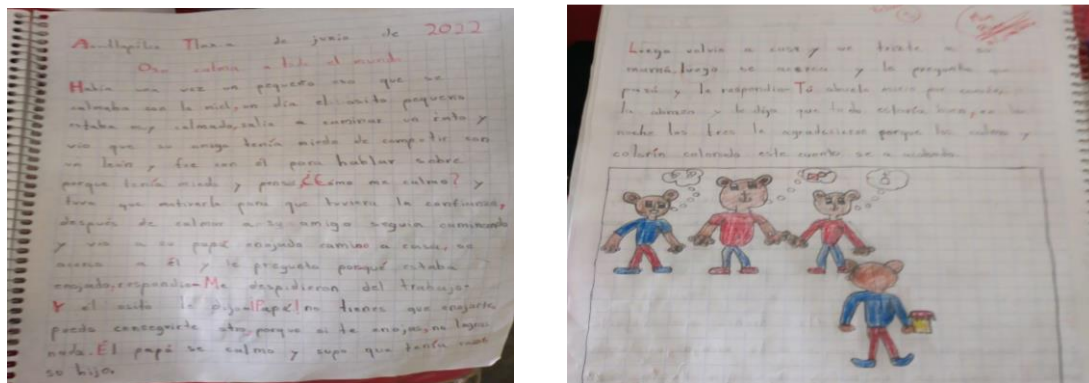 A Tlax. a de junio de 2022
Oso calma a todo el mundo
Había una vez un pequeño oso que se
calmaba con la miel, un día el osito pequeño
estaba muy calmado, salio a caminar un rato y
vio que su amigo tenía miedo de competir con
un león y fue con él para hablar sobre
porque tenía miedo y penso ¿Cómo me calmo? y
tuvo que motivarlo para que tuviera la confianza,
después de calmar a su amigo seguía caminando
y vio a su papá enojado camino a casa, se
acerco a él y le pregunto porqué estaba
enojado, respondio-Me despidieron del trabajo-
Y el osito le dijo-¡Papá! no tienes que enojarte,
puedo conseguirte otro, porque si te enojas, no logras
nada. Él papá se calmo y supo que tenía razón
su hijo.
Luego volvio a casa y ve triste a su
mamá, luego se acerca y le pregunta que
pasó y le respondio-Tú abuela murio por
la abrazo y le dijo que todo estaría bien, en la
noche los tres le agradecieron porque los calmo y
colorín colorado este cuento se a acabado.